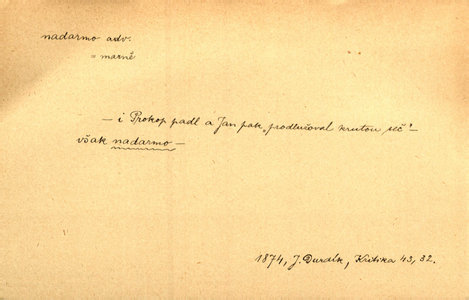 nadarmo adv.
= marně
— i Prokop padl a Jan pak „prodlužoval krutou seč“ —
však nadarmo —
1874, J. Durdík, Kritika 43, 32.